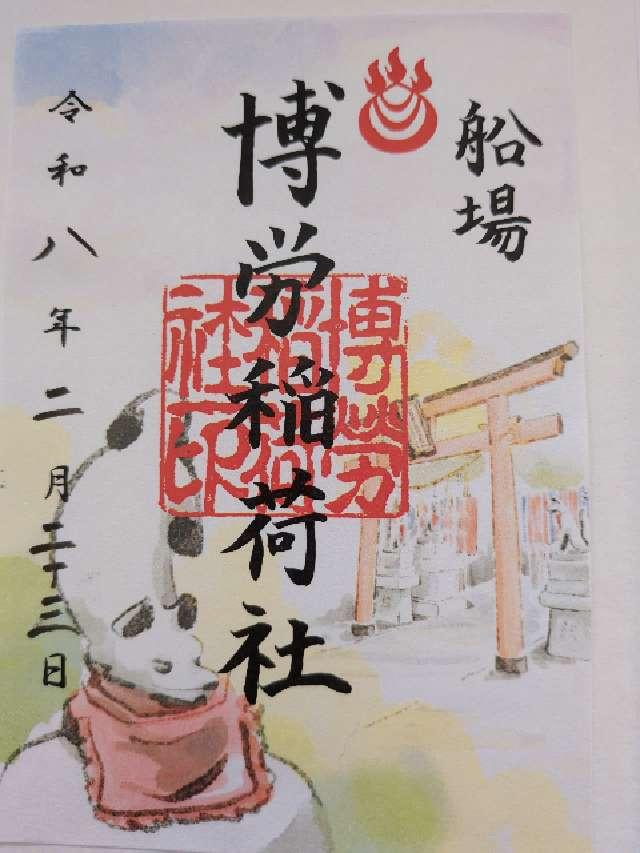 船場
博労稲荷社
博勞稲荷社印
令和八年二月二十三日